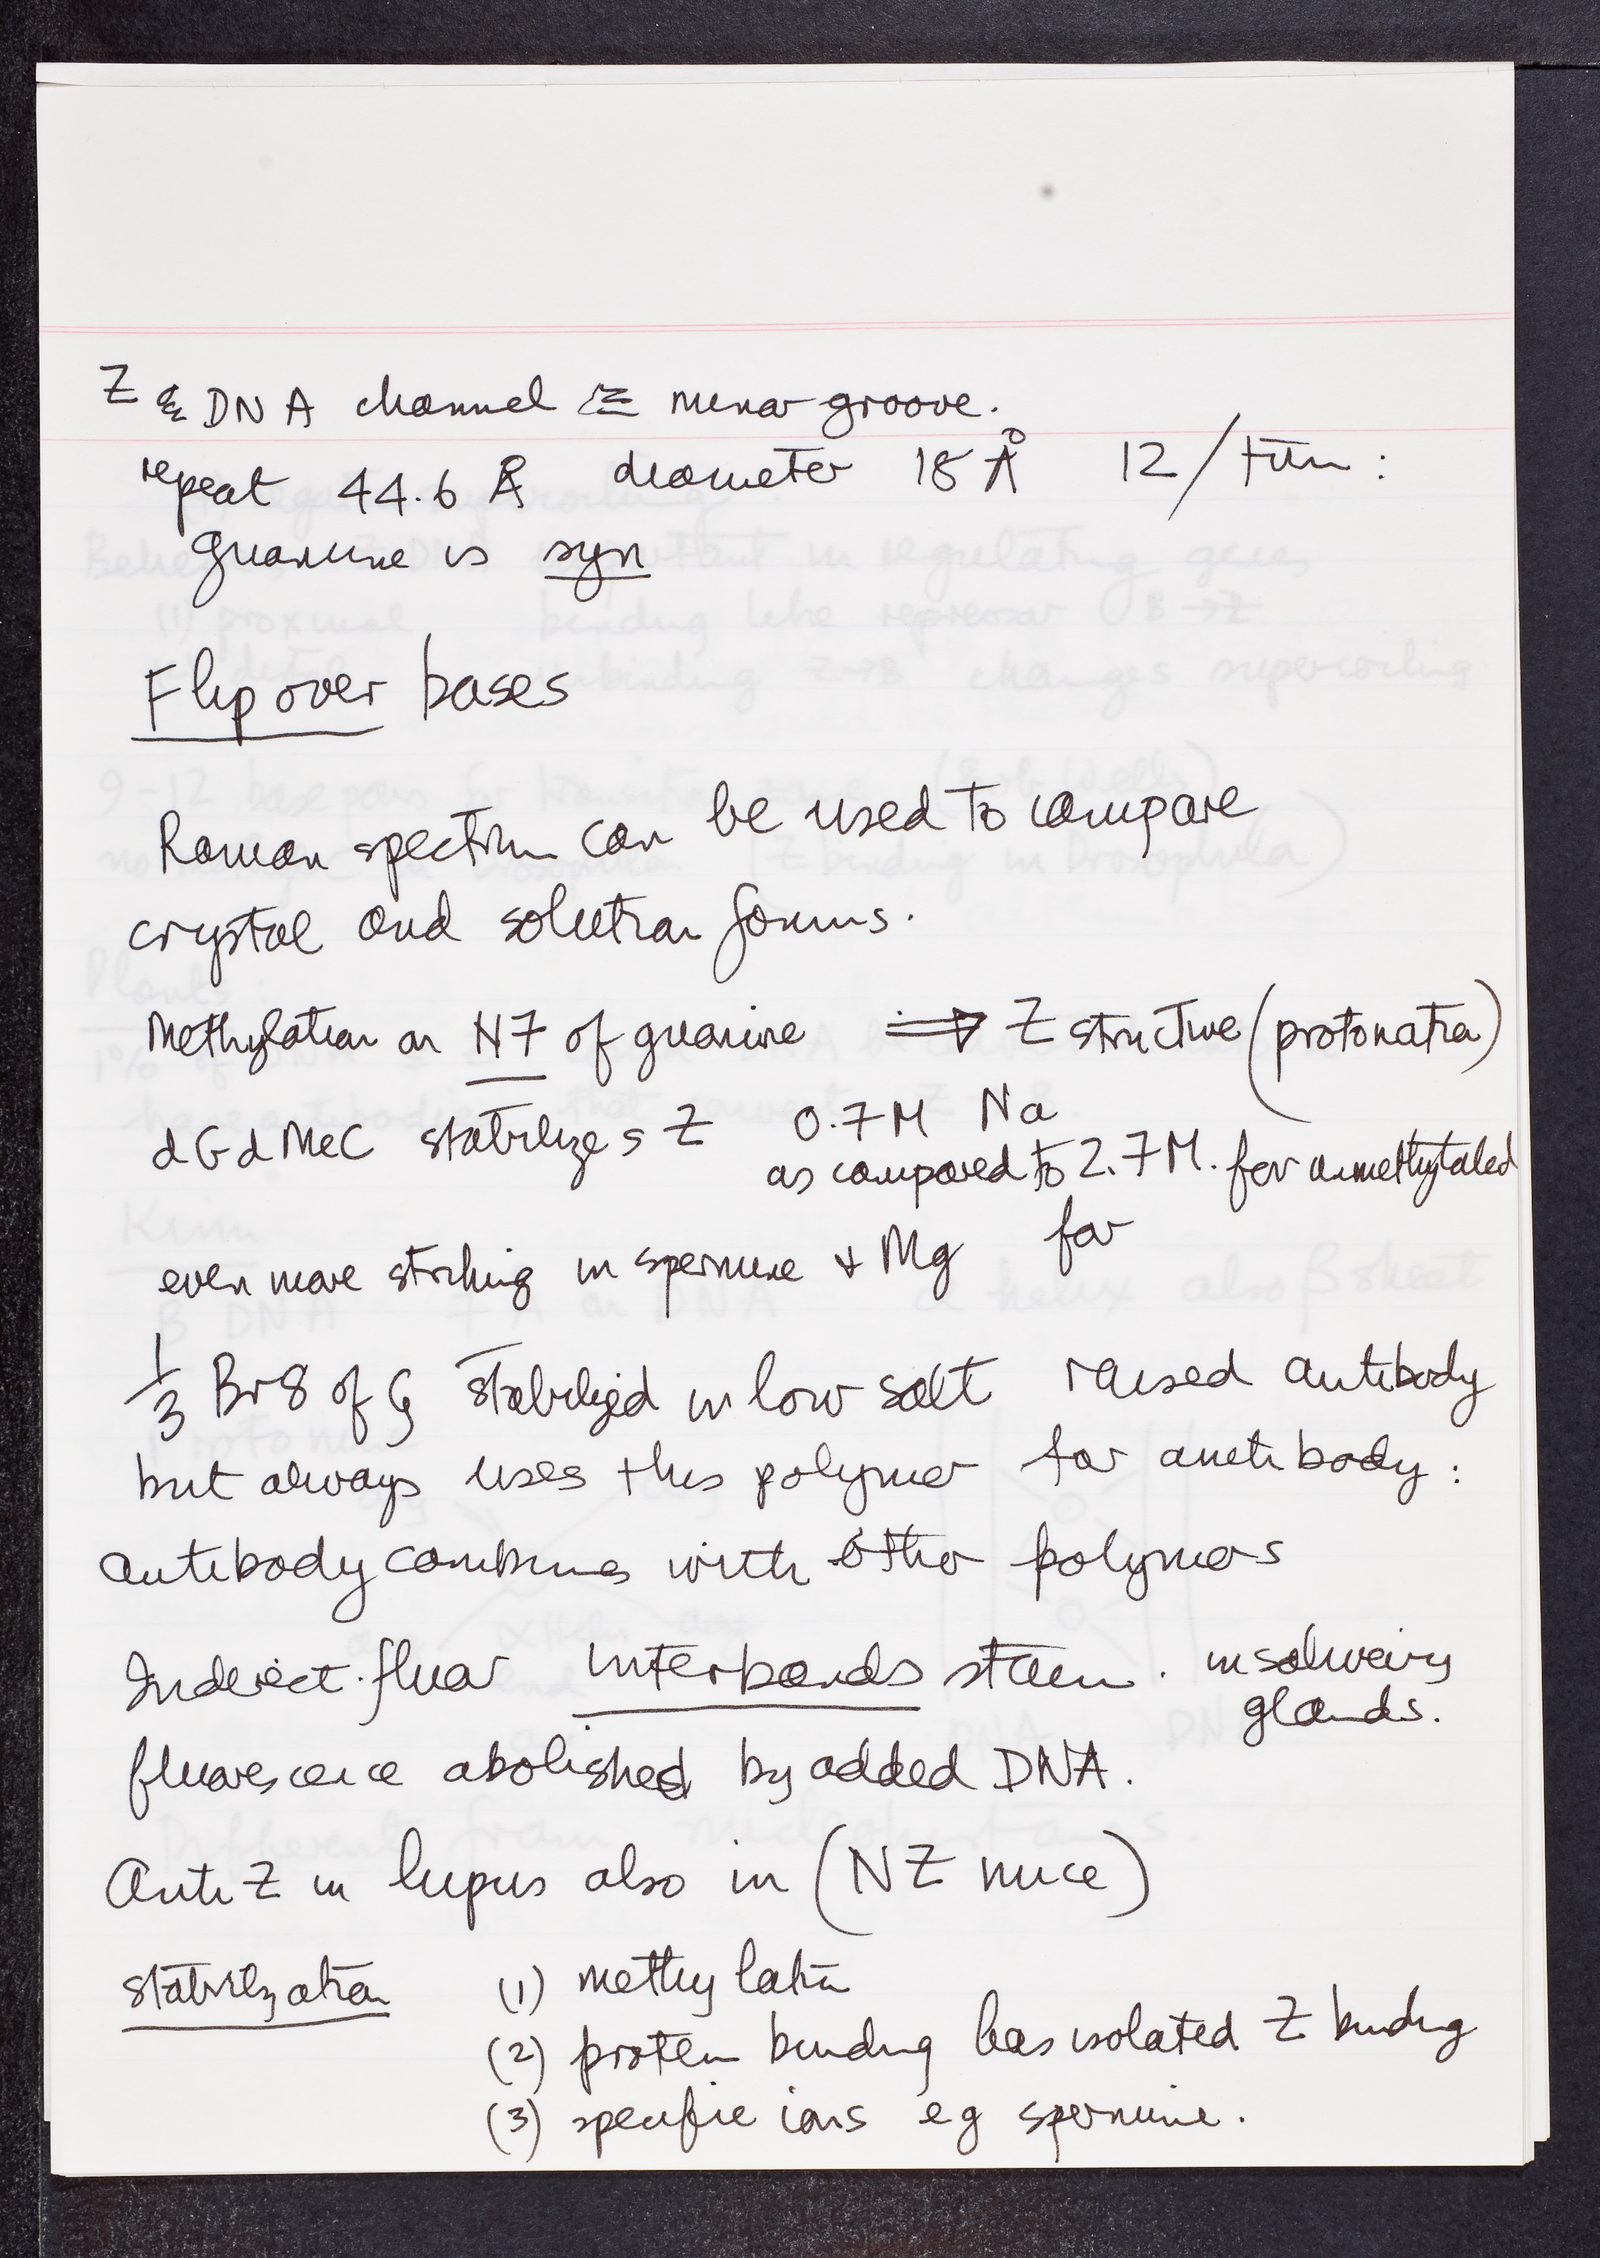 Z & DNA channel ≅ minor groove.
repeat 44.6 Å diameter 18 Å 12/turn:
guanine is syn
Flip over bases
Raman spectrum can be used to compare
crystal and solution forms.
Methylation on N7 of guanine ⇒ Z structure (protonation)
dGdMeC stabilizes Z 0.7M Na
as compared to 2.7M. for unmethylated
even more striking in spermine + Mg for
1/3 Br8 of G stabilized in low salt raised antibody
but always uses this polymer for antibody:
antibody combines with other polymers
Indirect. fluor interbands stain. in salivary
glands.
fluorescence abolished by added DNA.
Anti Z in lupus also in (NZ mice)
stabilization (1) methylation
(2) protein binding has isolated Z binding
(3) specific ions eg spermine.